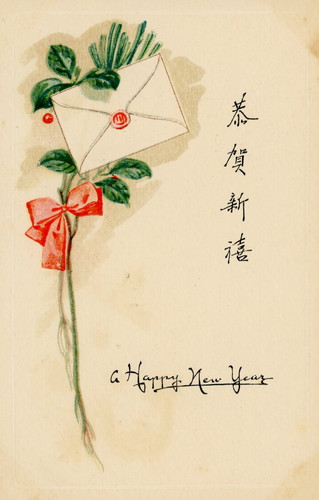 恭賀新禧
A Happy New Year